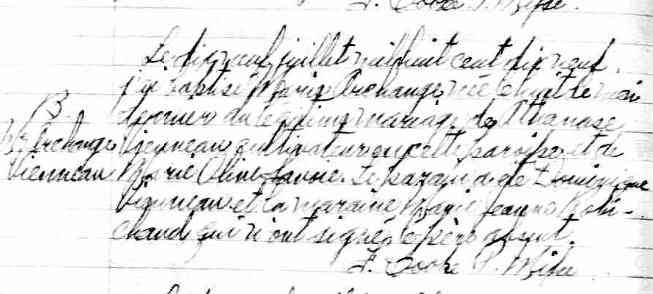 F. Cooke P. Miss.
Le dix neuf juillet mil huit cent dix neuf
j'ai baptisé Marie Archange née le huit de mai
B.
dernier du légitime mariage de Athanase
M. Archange
Vienneau cultivateur en cette paroisse et de
Vienneau
Marie Olive Savoie. Le parain a été Dominique
Vienneau et la maraine Marie Jeanne Robi-
chaud qui n'ont signé, le père absent.
F. Cooke P. Miss.